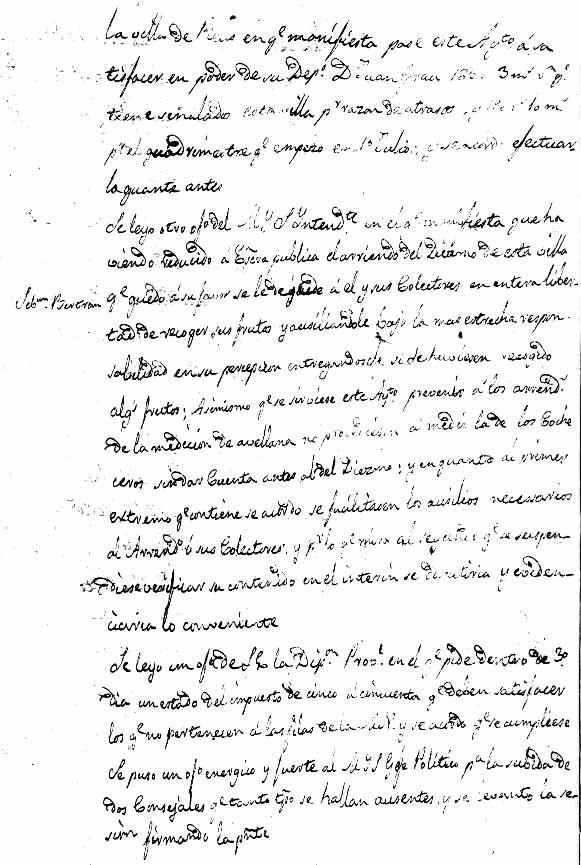 la villa de Reus en qe manifiesta pase este Ayto á sa
tisfacer en poder de su Depo Dn Juan Grau 3 ms vn qe
tiene señalado esta villa pr razon de atrasos,
pr el quadrimestre qe empezo en 1o Julio; y se acordo efectuar
lo quanto antes
Se leyo otro ofo del M. Y. S. Yntendte en el qe manifiesta que ha
viendo reducido á Escra publica el arriendo del Diezmo de esta villa
Sebn Bertran qe quedó á su favor se le dege á el y sus Colectores en entera liber-
tad de recoger sus frutos y ausiliandole bajo la mas estrecha respon-
sabilidad en su percepcion entregandosele si se huviesen recogido
algs frutos; Asimismo qe se sirviese este Ayto prevenir á los arrends
de la medicion de avellana no procediesen al medir la de los Coche
ceros sin dar Cuenta antes al del Diezmo; y en quanto al primer
extremo qe contiene se acordo se facilitasen los ausilios necessarios
al Arrendr ó sus Colectores, y pr lo qe mira al segundo qe se suspen-
diese verificar su contenido en el interin se discutiria y eviden-
ciaria lo conveniente
Se leyo un ofo de S. E. la Dipn Provl en el qe pide dentro de 3o
dia un estado del impuesto de cinco á cincuenta qe deben satisfacer
los qe no pertenecen á las filas de la M. N. y se acordo qe se cumpliese
Se puso un ofo energico y fuerte al M. Y. S. Gefe Politico pa la subida de
dos Consejales qe tanto tpo se hallan ausentes, y se levanto la se-
sion firmando la pnte